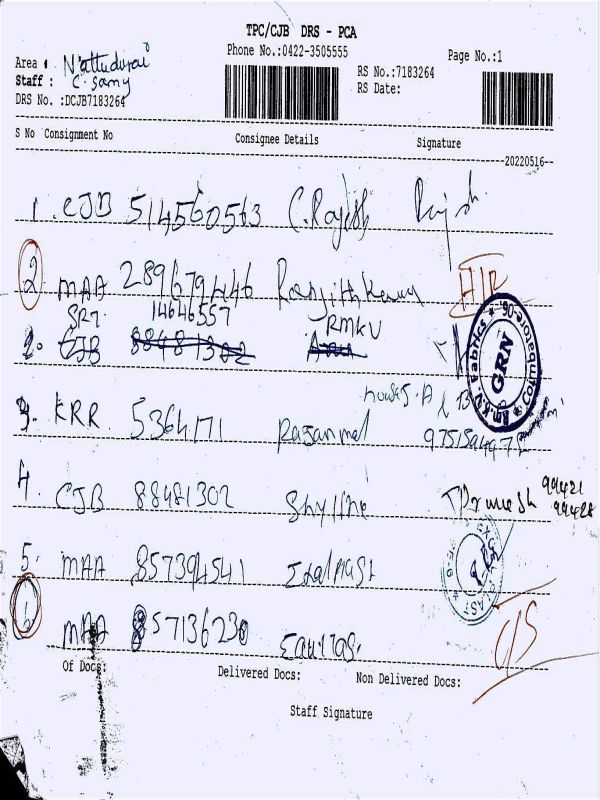 TPC/CJB DRS - PCA
Phone No.:0422-3505555
Page No.:1
Area : N'attudurai
Staff : C. Samy
DRS No. :DCJB7183264
RS No.:7183264
RS Date:
S No Consignment No Consignee Details Signature
20220516
1. CJB 514560563 C. Rajesh Rajesh
2 MAA 289679446 Ranjithkumar
SRT 14646557 RMKV
2. CJB 88481302
Rm.K.V. Fabrics * Coimbatore-06 * GRN
3. KRR 5364171 Rajammal
4. CJB 88481302 Shylline
99421
99428
5. MAA 857394541
6 MAA 857136230 Equitas.
Of Docs:
Delivered Docs:
Non Delivered Docs:
Staff Signature